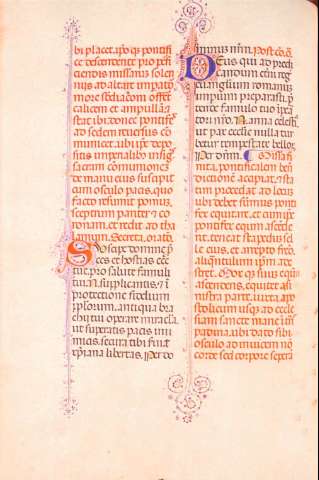 bi placet. ipo qz pontifi
ce descendente pro perfi
ciendis missarum solen
niis ad altare imperator
more
calicem et ampullam
stat ibi donec pontifex
ad sedem reversus com
municet. ubi ipe depo
sitis imperialibo insig
sacram comunionem
de manu eius suscipit
cum osculo pacis. quo
facto resumit pomum
sceptrum pariter et co
ronam. et redit ad tha
lamum. Secreta. oratio.
Suscipe domine preces
et hostias
tue. pro salute famuli
tui N. supplicantis. et i
protectione fidelium
pplorum. antiqua bra
chii tui operare miracla.
ut superatis pacis ini
micis. secura tibi serviat
xpiana libertas. Per do
minum nrm. Post com.
Deus qui ad predi
candum eterni regis
evangelium romanum
imperium preparasti. pre
tende famulo tuo impera
tori nro. N. arma celestia.
ut pax ecclesie nulla tur
betur tempestate bellorum.
Per dnm. Missa fi
nita. pontificalem ben
accipiat. et sta
tim precedat ad locum
ubi debet summus ponti
fex equitare. et cum ipe
pontifex equum ascende
rit. teneat stapedium sel
le eius. et arrepto freno
aliquantulum ipm ad
stret. Mox qz suum equum
ascendens. equitet a si
nistra parte. iuxta apo
stolicum usqz ad eccle
siam sancte marie in
patina. ubi dato sibi
osculo ad invicem non
corde sed corpore separa